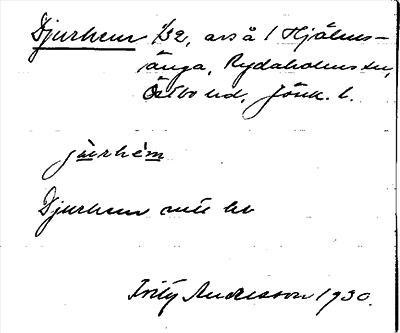 Djurhem 1/32, avs å 1 Hjälms-
änga, Rydaholms sn,
Östbo hd, Jönk. l.
jùrhèm
Djurhem
Fritz Andersson 1930.